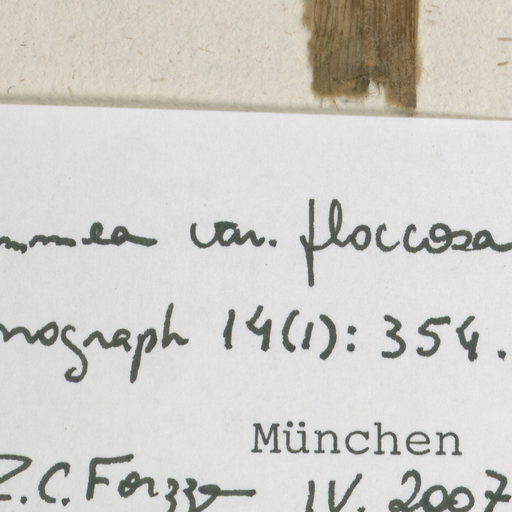 mmea var. floccosa
nograph 14(1): 354.
München
R.C. Forzza IV. 2007